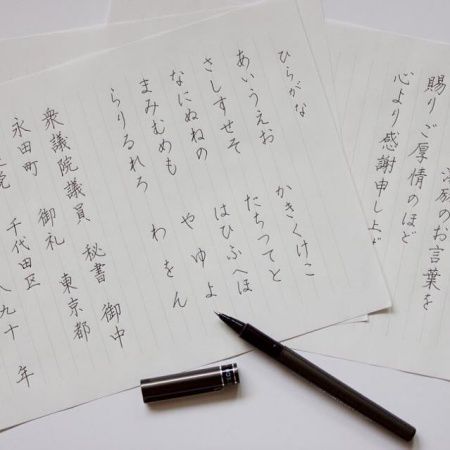 ひらがな
あいうえお　かきくけこ
さしすせそ　たちつてと
なにぬねの　はひふへほ
まみむめも　やゆよ
らりるれろ　わをん
衆議院議員　秘書　御中
永田町　御礼　東京都
千代田区　八九十　年
お言葉を
賜りご厚情のほど
心より感謝申し上げ